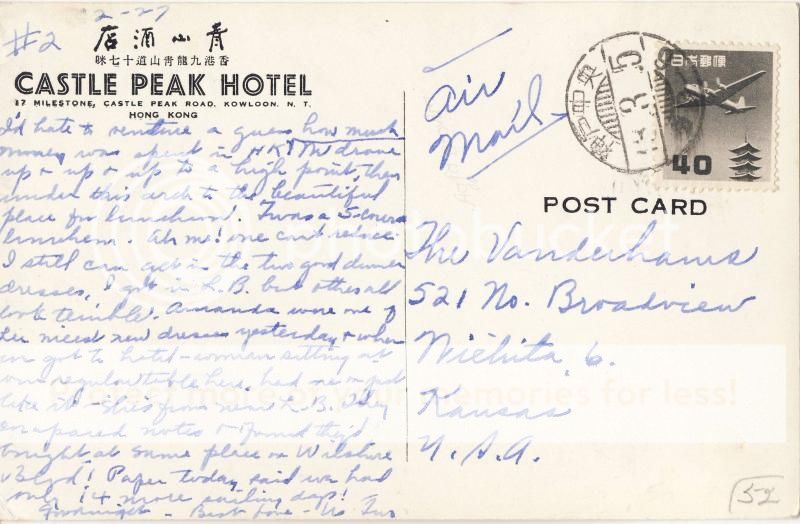 #2 2-27
青山酒店
香港九龍青山道十七咪
CASTLE PEAK HOTEL
17 MILESTONE, CASTLE PEAK ROAD, KOWLOON. N. T.
HONG KONG
I'd hate to venture a guess how much
money was spent in HK! We drove
up & up & up to a high point, then
under this arch to the beautiful
place for luncheon! Twas a 5-course
luncheon. Ah me! one can't reduce.
I still can get in the two good dinner
dresses, I got in L.B. but others all
look terrible. Amanda wore one of
her nicest new dresses yesterday & when
we got to hotel - woman sitting at
our regular table here, had one on just
like it - She's from near L.B. They
compared notes & found they'd
bought at same place on Wilshire
Blvd! Paper today said we had
only 14 more sailing days!
Goodnight - Best Love - Us Two
Air
Mail
日本郵便
40
神戸中央
POST CARD
The Vanderhams
521 No. Broadview
Wichita, 6.
Kansas
U.S.A.
52
photobucket
of your memories for less!